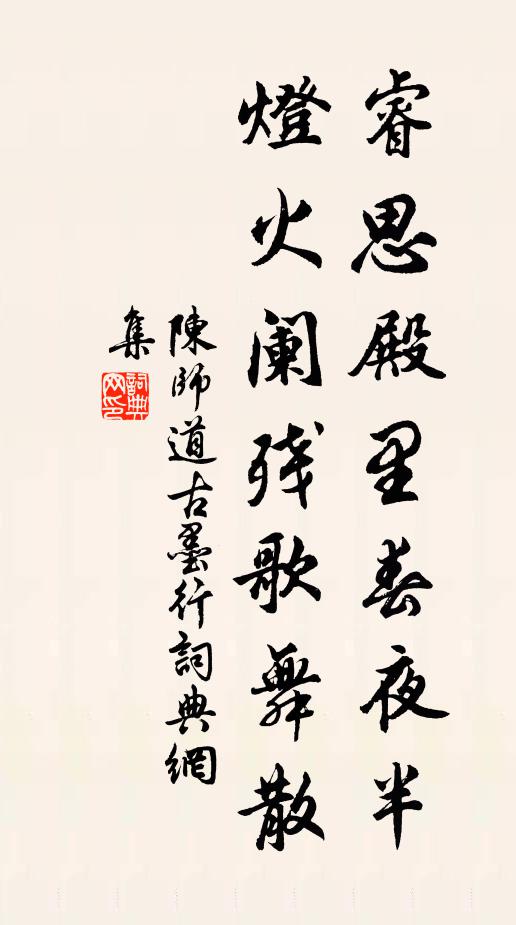 睿思殿里春夜半
燈火阑残歌舞散
陳師道古墨行詞典網
集
詞典
网印